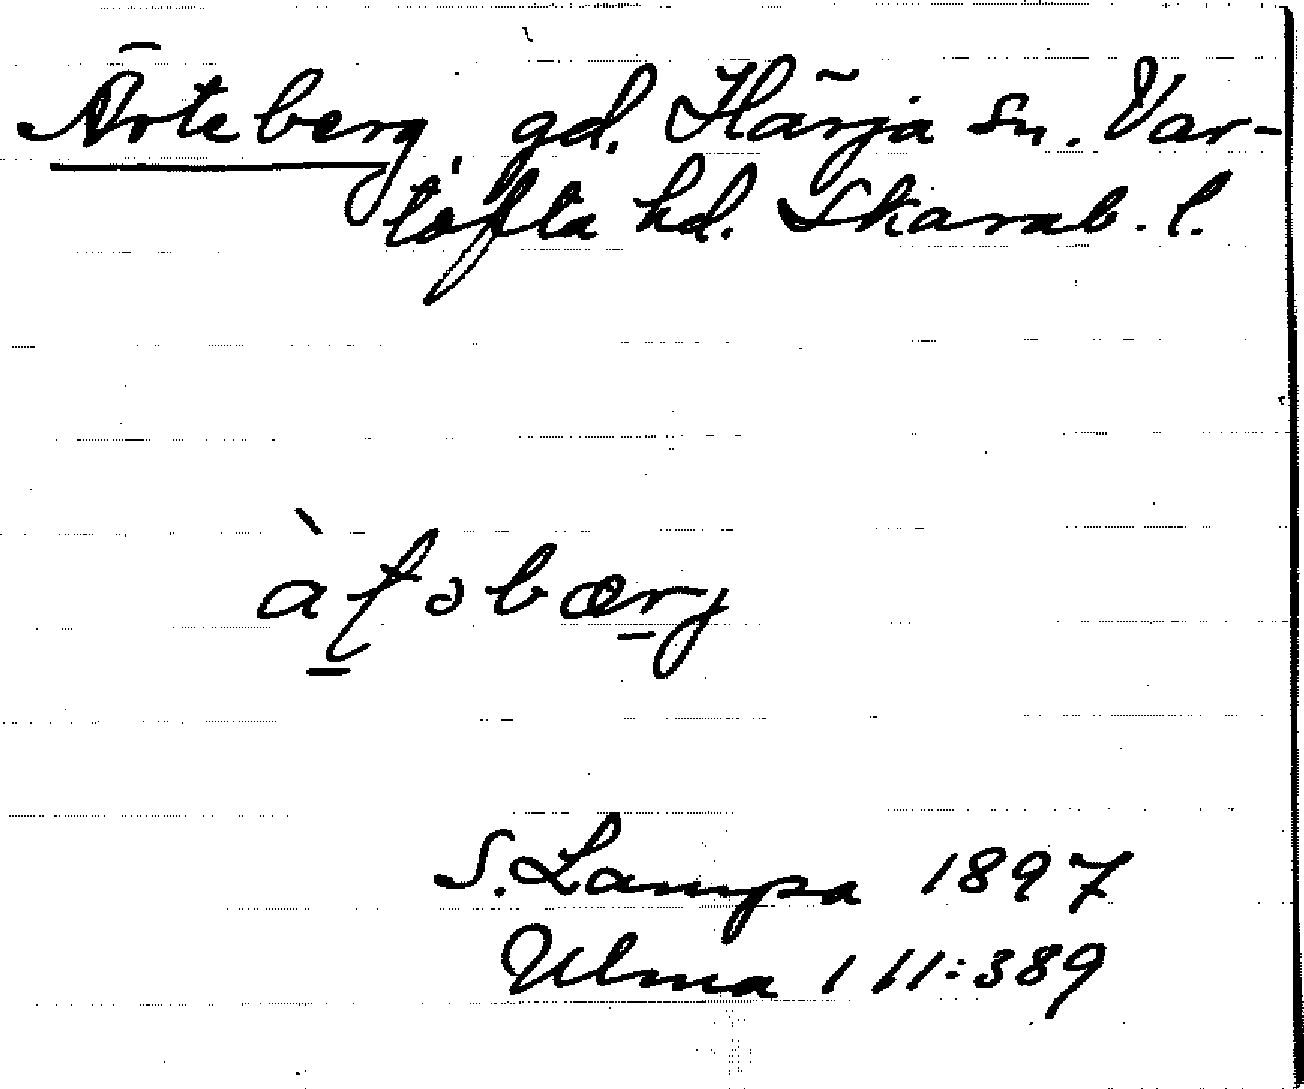 Ärteberg, gd. Härja sn. Var-
tofta hd. Skarab. l.
àt̠əbær̠j
S. Lampa 1897
Ulma 111:389